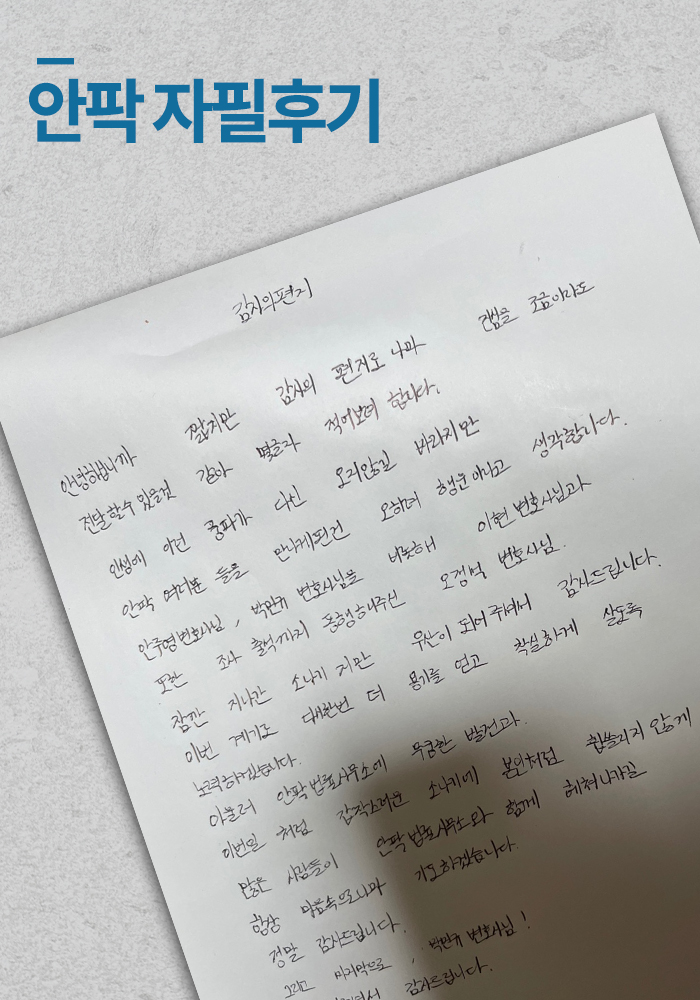 안팍 자필후기
감사의 편지
안녕하십니까 짧지만 감사의 편지로 나마 진심을 조금이라도
전달할수 있을것 같아 몇글자 적어보려 합니다.
인생에 이런 풍파가 다신 오지않길 바라지만
안팍 여러분 들을 만나게된건 오히려 행운이라고 생각합니다.
안주영변호사님, 박민규 변호사님을 비롯해 이현 변호사님과
또한 조사 출석까지 동행해주신 오정석 변호사님.
잠깐 지나간 소나기 지만 우산이 되어 주셔서 감사드립니다.
이번 계기로 다시한번 더 용기를 얻고 착실하게 살도록
노력하겠습니다.
아울러 안팍법률사무소에 무궁한 발전과.
이번일 처럼 갑작스러운 소나기에 본인처럼 휩쓸리지 않게
많은 사람들이 안팍법률사무소와 함께 헤쳐나가길
항상 마음속으로나마 기도하겠습니다.
정말 감사드립니다.
그리고 마지막으로, 박민규 변호사님!
감사드립니다.